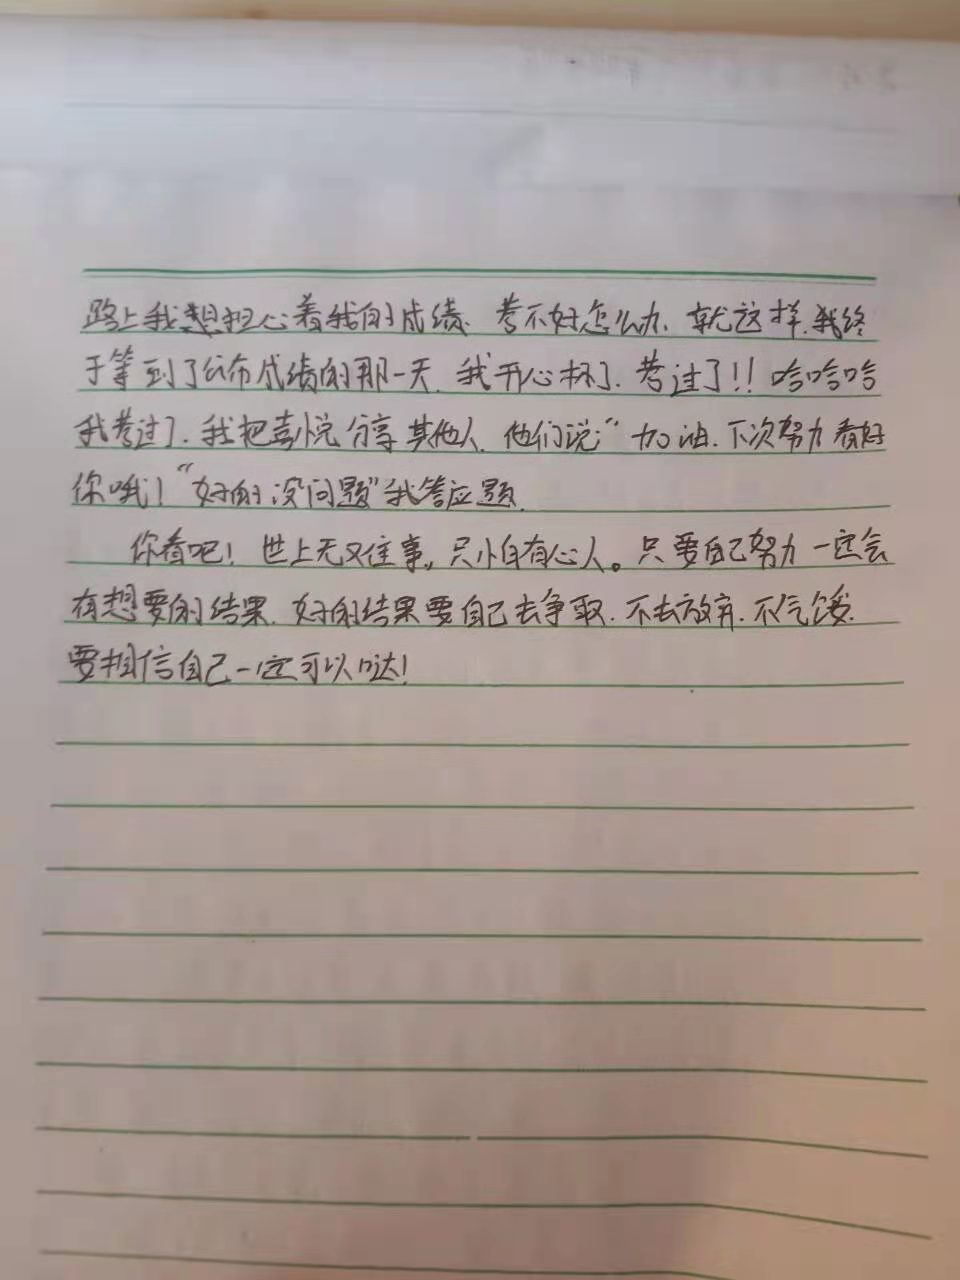 路上我想担心着我的成绩、考不好怎么办、就这样、我终
于等到了公布成绩的那一天、我开心坏了、考过了!!哈哈哈
我考过了、我把喜悦分享其他人、他们说:“加油、下次努力看好
你哦!“好的没问题”我答应题、
你看吧!世上无又住事,,只小白有心人。只要自己努力一定会
有想要的结果、好的结果要自己去争取、不去放弃、不气馁、
要相信自己一定可以哒!